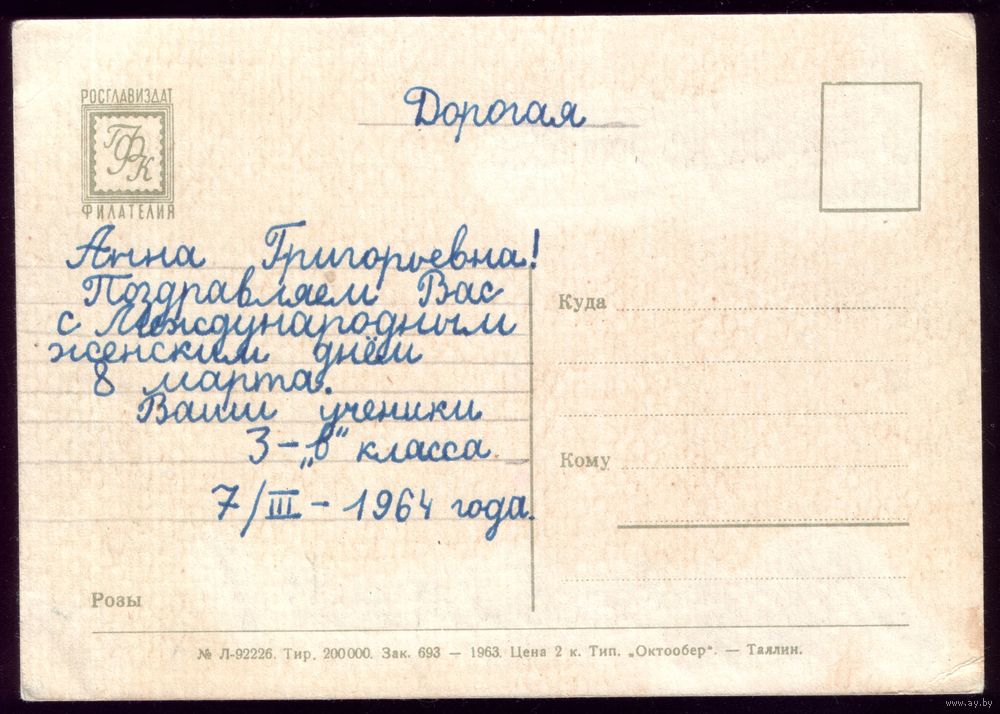 РОСГЛАВИЗДАТ
ГФК
ФИЛАТЕЛИЯ
Дорогая
Анна Григорьевна!
Поздравляем Вас
с Международным
женским днём
8 марта.
Ваши ученики
3-„в" класса
7/III - 1964 года.
Куда
Кому
Розы
№ Л-92226. Тир. 200000. Зак. 693 — 1963. Цена 2 к. Тип. „Октообер". — Таллин.
www.ay.by